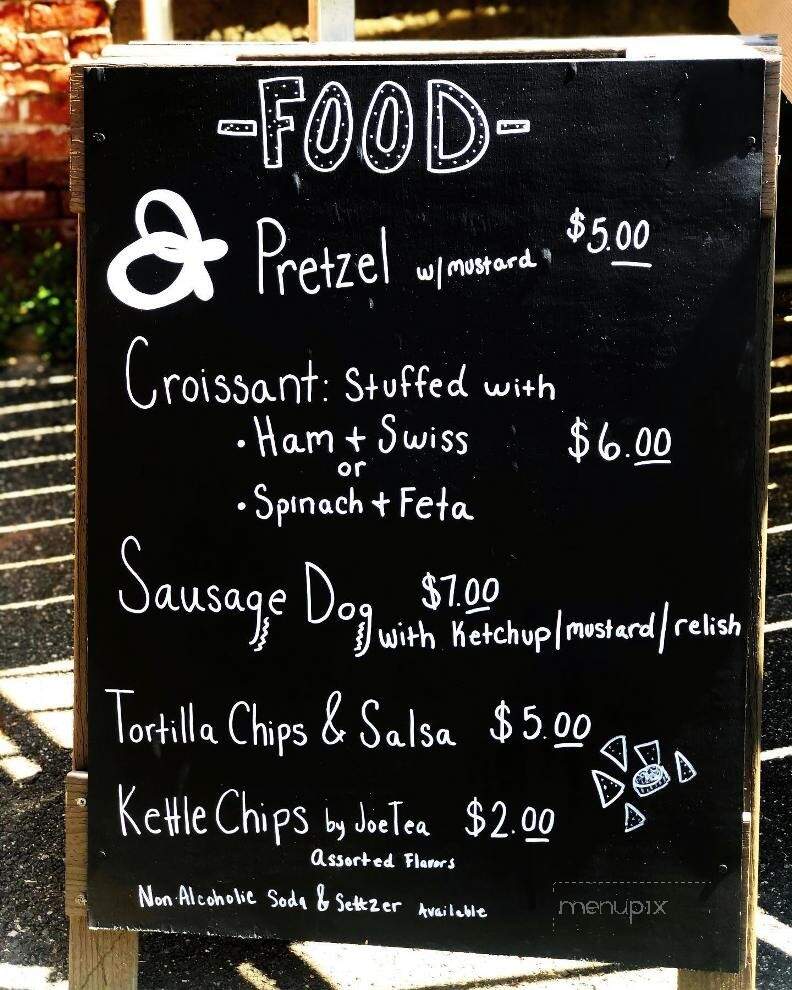 -FOOD-
Pretzel w/mustard $5.00
Croissant: Stuffed with
• Ham + Swiss $6.00
or
• Spinach + Feta
Sausage Dog $7.00
with Ketchup/mustard/relish
Tortilla Chips & Salsa $5.00
Kettle Chips by JoeTea $2.00
Assorted Flavors
Non-Alcoholic Soda & Seltzer Available
menupix